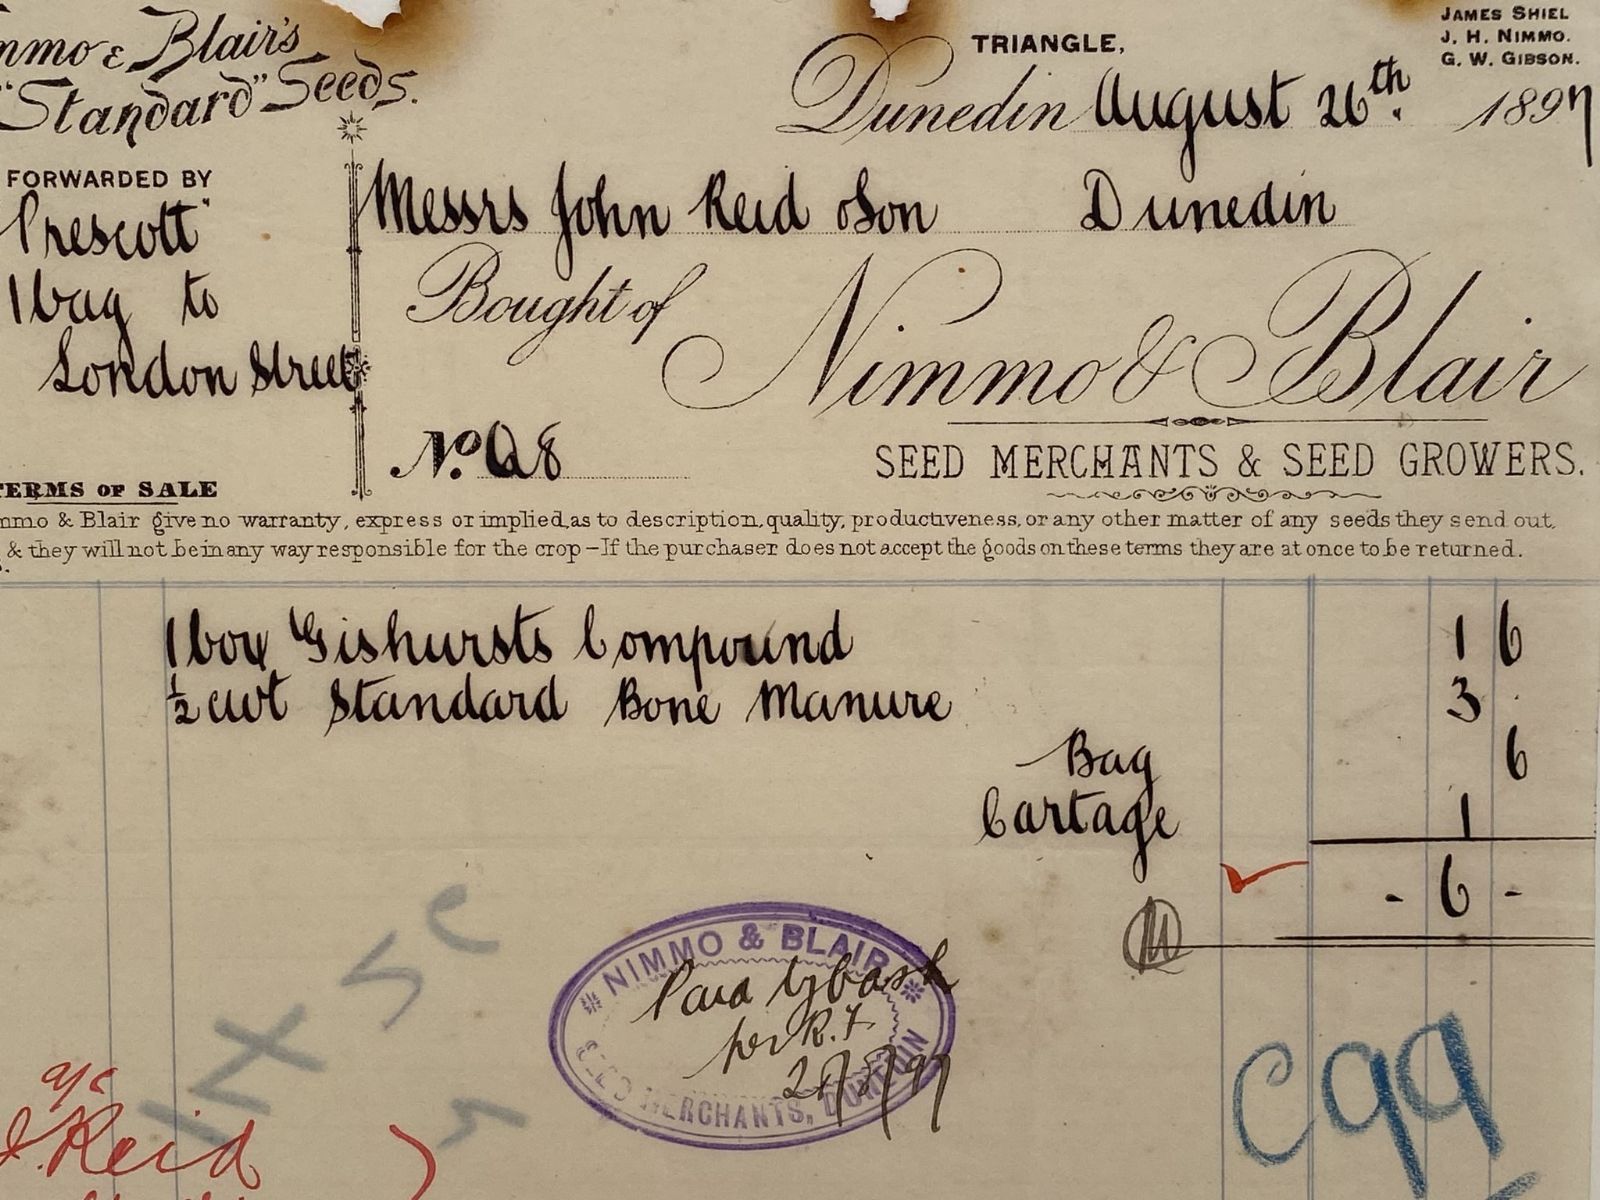 mmo & Blair's
"Standard" Seeds.
TRIANGLE,
JAMES SHIEL
J. H. NIMMO.
G. W. GIBSON.
Dunedin August 26th. 1897
FORWARDED BY
Prescott"
1 bag to
London Street
Messrs John Reid & Son Dunedin
Bought of Nimmo & Blair
SEED MERCHANTS & SEED GROWERS.
No. Q8
TERMS OF SALE
mmo & Blair give no warranty, express or implied, as to description, quality, productiveness, or any other matter of any seeds they send out,
& they will not be in any way responsible for the crop – If the purchaser does not accept the goods on these terms they are at once to be returned.
1 box Gishursts Compound 1 6
½ cwt Standard Bone Manure 3 .
Bag 6
Cartage 1
- 6 -
NIMMO & BLAIR
Paid by Cash
per R. F.
SEED MERCHANTS, DUNEDIN
a/c
J. Reid
C99